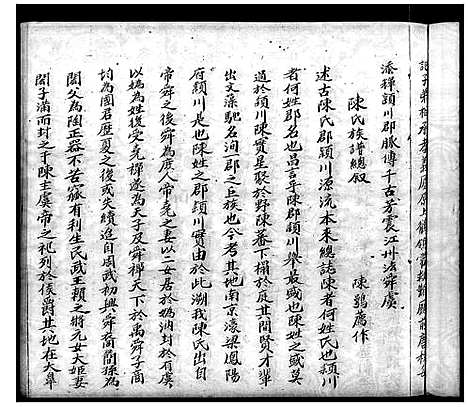 添禪頴川郡脉傳千古芳震江州法舜虞
陳氏族譜總叙
陳鶚薦作
述古陳氏郡頴川源流本来總誌陳者何姓氏也頴川
者何姓郡名也昌言乎陳郡頴川舉最盛也陳姓之盛莫
過於頴川陳實是聚於野陳蕃下榻於底其間賢才輩
出文藻馳名洵郡之巨族也今考其地南京濠梁鳳陽
府頴川是也陳姓之郡頴川實由於此溯我陳氏出自
帝舜之後舜為庶人帝堯之妻以二女居於媯汭封於有虞
以媯為姓後受堯禪遂為天子及舜禪天下於禹舜子商
均為國君歷夏之後或失續迨自周武初興舜裔閼孫為
閼父為陶正器不苦窳有利生民武王賴之將元女大姬妻
閼子滿而封之于陳主虞帝之祀列於侯爵其地在大皞